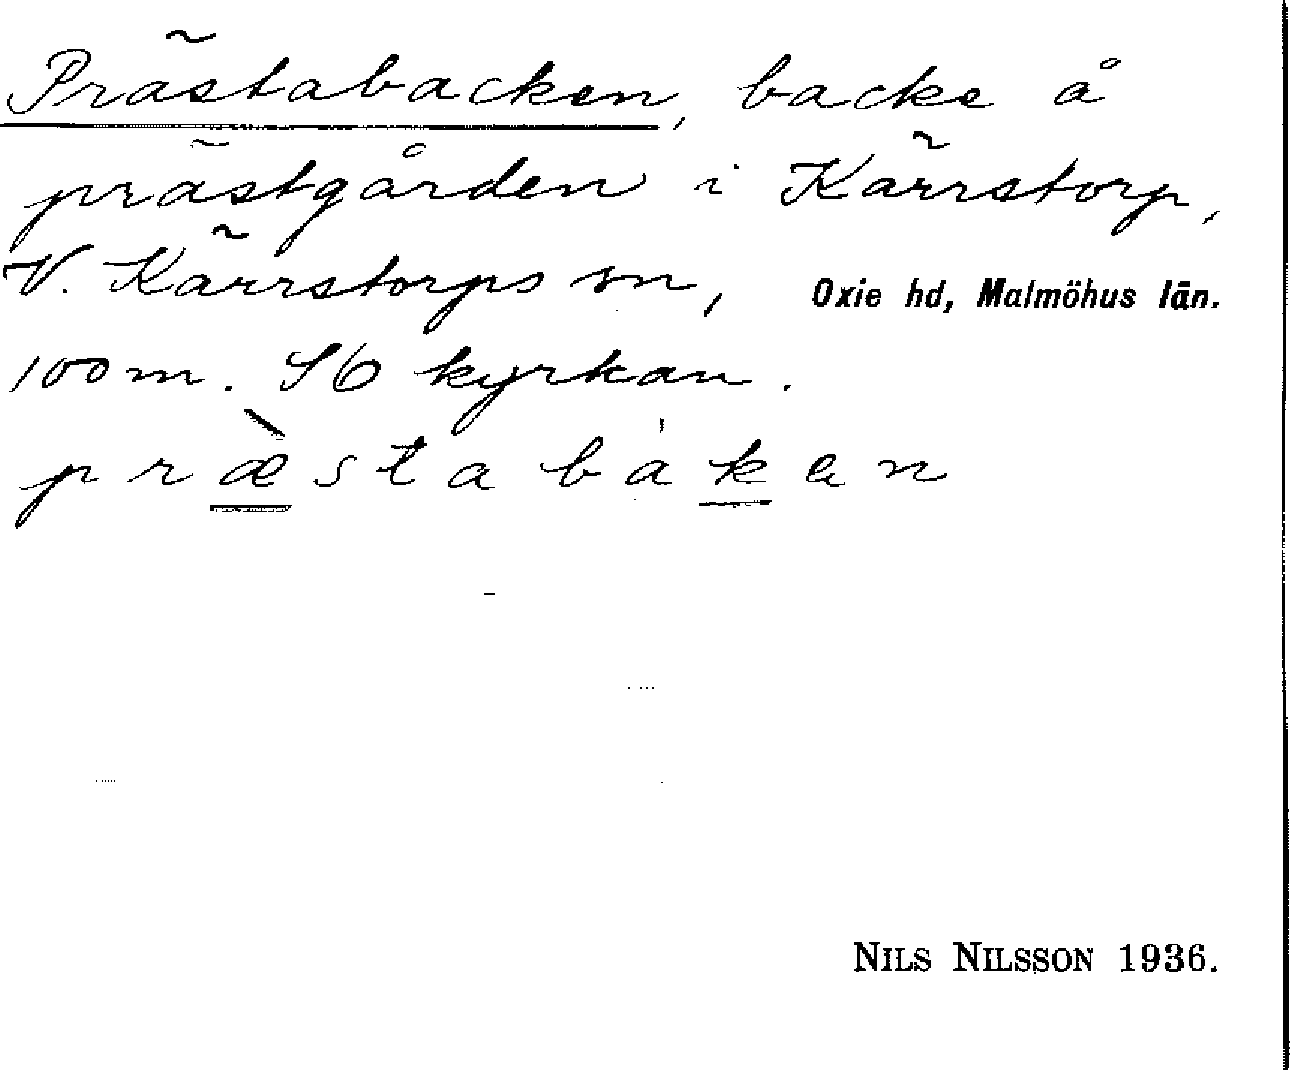 Prästabacken, backe å
prästgården i Kärrstorp,
V. Kärrstorps sn, Oxie hd, Malmöhus län.
100 m. SÖ kyrkan.
præ̀staba'ken
NILS NILSSON 1936.